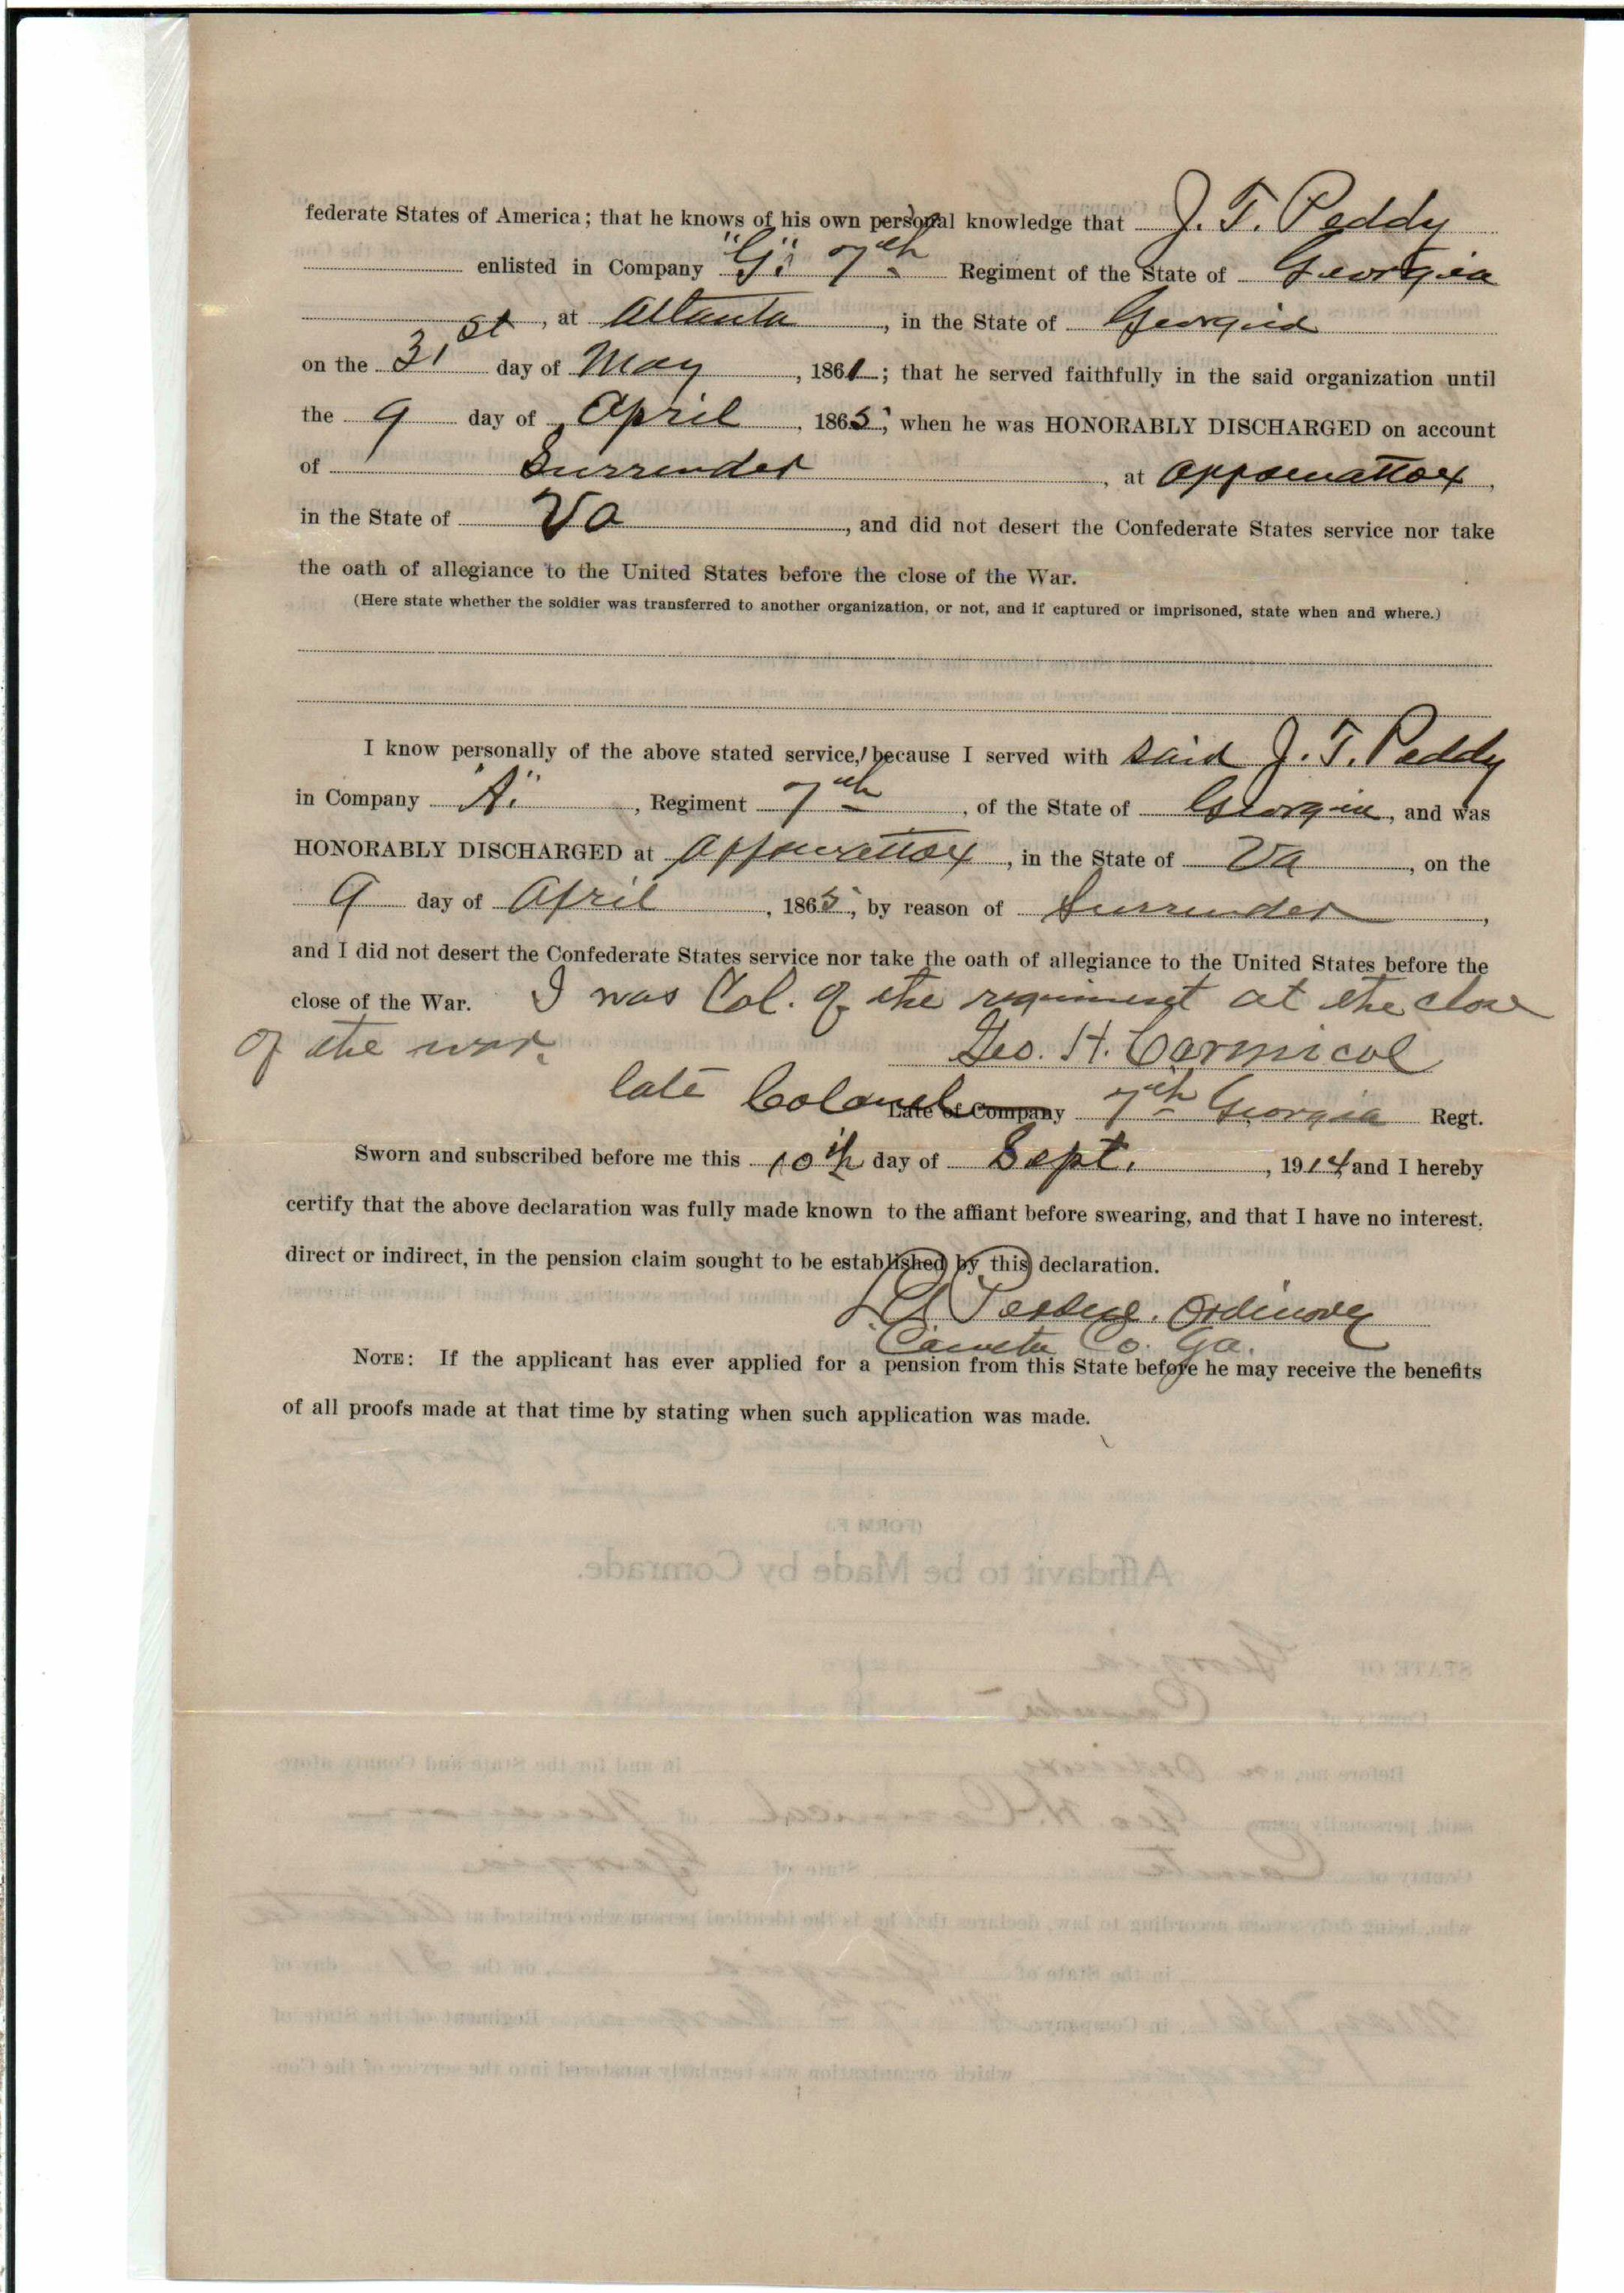 federate States of America; that he knows of his own personal knowledge that J. T. Peddy
enlisted in Company "G" 7th Regiment of the State of Georgia
, at Atlanta, in the State of Georgia
on the 31st day of May, 1861; that he served faithfully in the said organization until
the 9 day of April, 1865, when he was HONORABLY DISCHARGED on account
of Surrender, at Appomattox,
in the State of Va, and did not desert the Confederate States service nor take
the oath of allegiance to the United States before the close of the War.
(Here state whether the soldier was transferred to another organization, or not, and if captured or imprisoned, state when and where.)
I know personally of the above stated service, because I served with said J. T. Peddy
in Company "A", Regiment 7th, of the State of Georgia, and was
HONORABLY DISCHARGED at Appomattox, in the State of Va, on the
9 day of April, 1865, by reason of Surrender,
and I did not desert the Confederate States service nor take the oath of allegiance to the United States before the
close of the War. I was Col. of the regiment at the close
of the war.
Geo. H. Carmical
late Colonel Late of Company 7th Georgia Regt.
Sworn and subscribed before me this 10th day of Sept., 1914 and I hereby
certify that the above declaration was fully made known to the affiant before swearing, and that I have no interest,
direct or indirect, in the pension claim sought to be established by this declaration.
Ordinary
Coweta Co. Ga.
NOTE: If the applicant has ever applied for a pension from this State before he may receive the benefits
of all proofs made at that time by stating when such application was made.